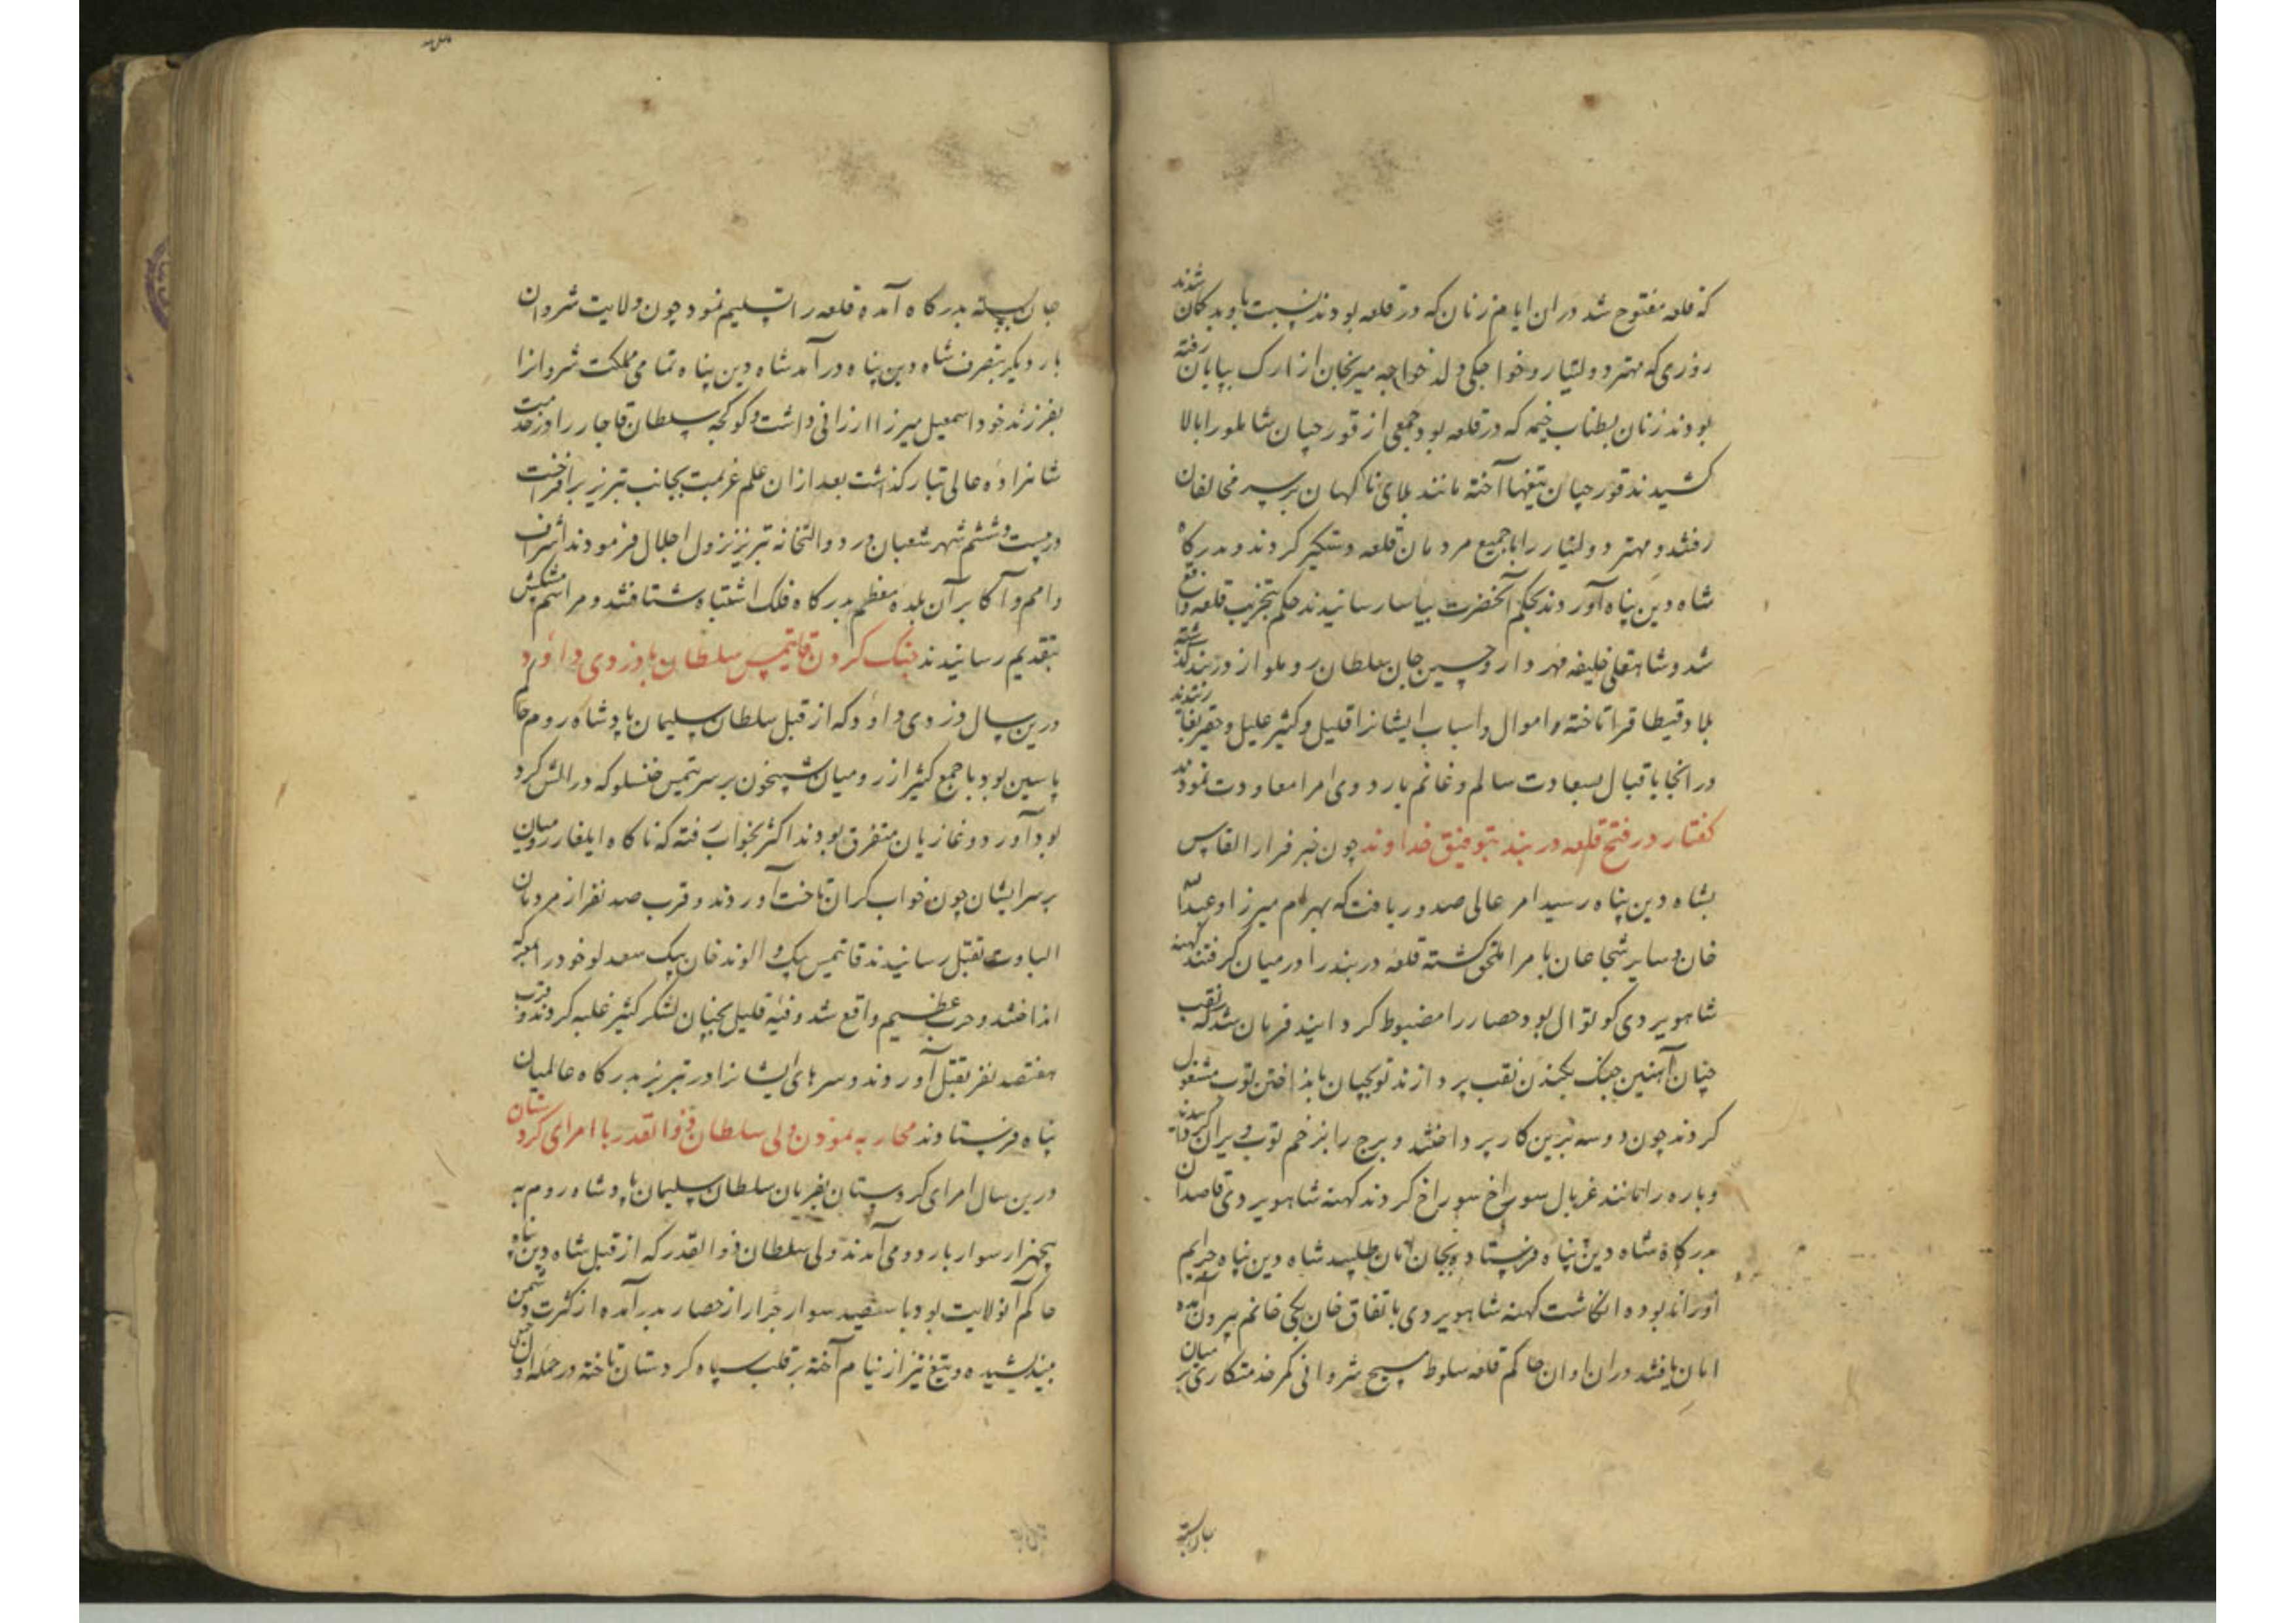 که قلعه مفتوح شد در ان ایام زنان که در قلعه بودند نسبت باو بدکمان شدند
روزی که مهتر دولتیار و خواجکی ولد خواجه میرنجان از ارک بپایان رفته
بودند زنان بطناب خیمه که در قلعه بود جمعی از قورچیان شاملو را بالا
کشیدند قورچیان تیغها آخته مانند بلای ناکهان بر سر مخالفان
رفتند و مهتر دولتیار را با جمیع مردمان قلعه دستکیر کردند و بدرکاه
شاه دین پناه آوردند بحکم آنحضرت بیاسا رسانیدند حکم بتخریب قلعه واقع
شد و شاهقلی خلیفه مهردار و حسین جان سلطان روملو از دربند کذشته
بلاد قیطاقرا تاخته و اموال و اسباب ایشانرا قلیل و کثیر علیل و حقیر
در انجا باقبال بسعادت سالم و غانم باردوی امرا معاودت نمودند
کفتار در فتح قلعه دربند بتوفیق خداوند چون خبر فرار القاس
بشاه دین پناه رسید امر عالی صدور یافت که بهرام میرزا و عبدالله
خان و سایر شجاعان بامرا ملحق کشته قلعه دربند را در میان کرفتند کهنه
شاهویردی کوتوال بود حصار را مضبوط کردانید فرمان شد که نقب
چیان آهنین چنک بکندن نقب پردازند توپچیان بانداختن توپ مشغول
کردند چون دو سه برین کار پرداختند و برج را بزخم توپ ویران کردانیدند
و باره را مانند غربال سوراخ سوراخ کردند کهنه شاهویردی قاصدان
بدرکاه شاه دین پناه فرستاد و بجان امان طلبید شاه دین پناه جرایم
اورا نابوده انکاشت کهنه شاهویردی باتفاق خان بیکی خانم بیرون آمده
امان یافتند در ان اوان حاکم قلعه سلوط مسیح شروانی کمر خدمتکاری بر میان
جان بسته
جان بسته بدرکاه آمده قلعه را تسلیم نمود چون ولایت شروان
بار دیکر بتصرف شاه دین پناه درآمد شاه دین پناه تمامی مملکت شروانرا
بفرزند خود اسمعیل میرزا ارزانی داشت و کوکجه سلطان قاجار را در خدمت
شاهزاده عالی تبار کذاشت بعد از ان علم عزیمت بجانب تبریز برافراخت
در بیست و ششم شهر شعبان در دولتخانه تبریز نزول اجلال فرمودند اشراف
و امم و آکابر آن بلده معظم بدرکاه فلک اشتباه شتافتند و مراسم پیشکش
بتقدیم رسانیدند جنک کردن قاتیمس سلطان با دزدی داود
درین سال دزدی داود که از قبل سلطان سلیمان پادشاه روم حاکم
پاسین بود با جمع کثیر از رومیان شبیخون بر سر تیمس خنسلو که در الشکرد
بود آورد و غازیان متفرق بودند اکثر بخواب رفته که ناکاه ایلغار رومیان
بر سر ایشان چون خواب کران تاخت آوردند و قرب صد نفر از مردمان
الباوت بقتل رسانیدند قاتیمس بیک و الوند خان بیک سعدلو خود را بمعرکه
انداختند و حرب عظیم واقع شد و فئه قلیل بچنان لشکر کثیر غلبه کردند و قرب
هفتصد نفر بقتل آوردند و سرهای ایشانرا در تبریز بدرکاه عالمیان
پناه فرستادند محاربه نمودن ولی سلطان ذوالقدر با امرای کردستان
درین سال امرای کردستان بفرمان سلطان سلیمان پادشاه روم به
پنجهزار سوار باردو می آمدند ولی سلطان ذوالقدر که از قبل شاه دین پناه
حاکم آنولایت بود با سیصد سوار جرار از حصار بدر آمده از کثرت دشمن
نیندیشیده و تیغ تیز از نیام آخته بر قلب سپاه کردستان تاخته در حمله اول